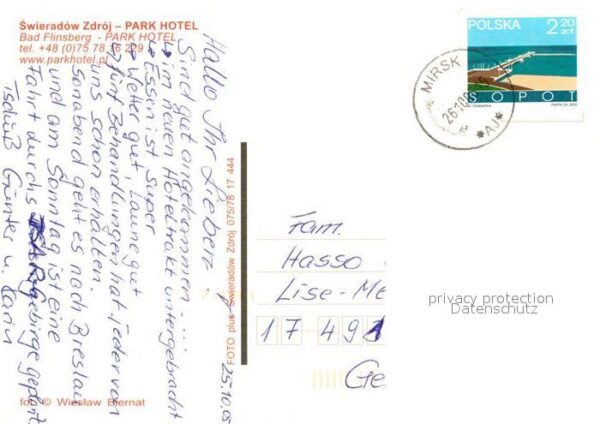 Świeradów Zdrój – PARK HOTEL
Bad Flinsberg - PARK HOTEL
tel. +48 (0)75 78 16 229
www.parkhotel.pl
Hallo Ihr Lieben
Sind gut angekommen -
im neuen Hoteltrakt untergebracht
Essen ist super
Wetter gut, Laune gut
fünf Behandlungen hat jeder von
uns schon erhalten.
Sonabend geht es nach Breslau
und am Sonntag ist eine
Fahrt durchs gebirge geplant
Tschüß Günter u. Karin
25.10.05
fot. © Wiesław Biernat
FOTO plus Świeradów Zdrój 075/78 17 444
POLSKA 2 20 ZŁ
SOPOT
MIRSK
26.10.05
*AJ*
Fam.
Hasso
Lise-Me
17-491
Ge
privacy protection
Datenschutz